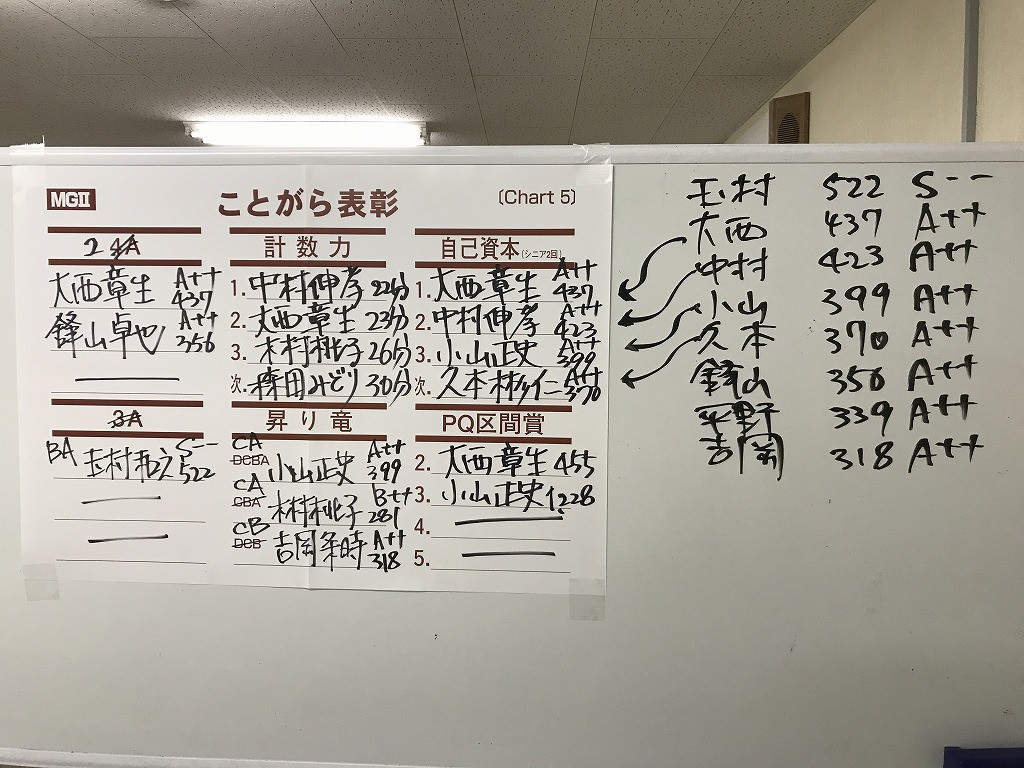 MGⅡ
ことがら表彰
〔Chart 5〕
2 4A
大西章生 A++ 437
鋒山卓也 A++ 356
3A
BA 玉村 S-- 522
計数力
1. 中村伸孝 22分
2. 大西章生 23分
3. 木村桃子 26分
次. 篠田みどり 30分
昇り竜
CA DCBA 小山正史 A++ 399
CA CBA 木村桃子 B++ 281
CB DCB 吉岡 A++ 318
自己資本(シニア2回)
1. 大西章生 A++ 437
2. 中村伸孝 A++ 423
3. 小山正史 A++ 399
次. 久本彬仁 A++ 370
PQ区間賞
2. 大西章生 455
3. 小山正史 1228
4.
5.
玉村 522 S--
大西 437 A++
中村 423 A++
小山 399 A++
久本 370 A++
鋒山 356 A++
平野 339 A++
吉岡 318 A++